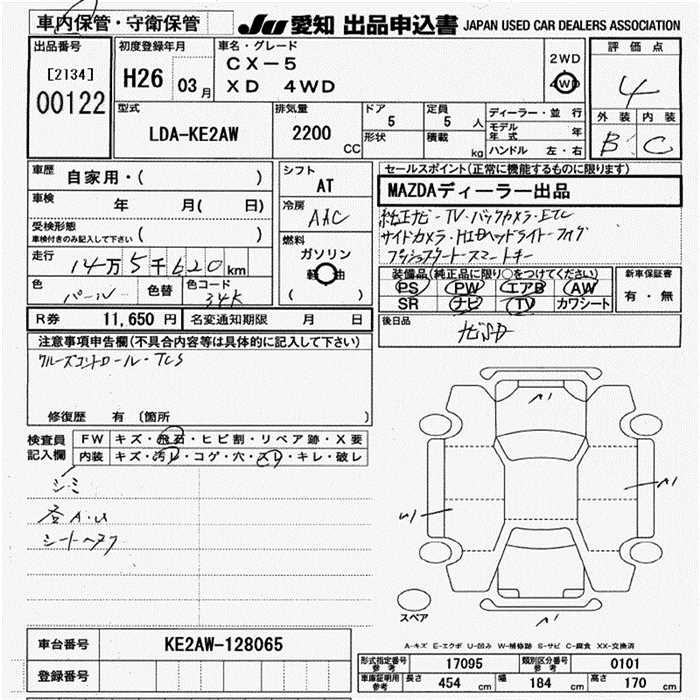 車内保管・守衛保管
JU 愛知 出品申込書 JAPAN USED CAR DEALERS ASSOCIATION
出品番号
[2134]
00122
初度登録年月
H26 03月
車名・グレード
CX-5
XD 4WD
2WD
4WD
評価点
4
外装 内装
B C
型式
LDA-KE2AW
排気量
2200 CC
ドア 5
形状
定員 5 人
積載 kg
ディーラー・並行
モデル年式 年
ハンドル 左・右
車歴
自家用・( )
車検
年 月( 日)
受検形態
車検付きのみ記入して下さい ( )
走行
14万5千620km
色
パール
色替
色コード
34K
シフト
AT
冷房
AAC
燃料
ガソリン
軽油
( )
セールスポイント(正常に機能するものに限ります)
MAZDAディーラー出品
純正ナビ・TV・バックカメラ・ETC
サイドカメラ・HIDヘッドライト・フォグ
プッシュスタート・スマートキー
装備品(純正品に限り○をつけてください)
PS PW エアB AW
SR ナビ TV カワシート
新車保証書
有・無
R券 11,650円
名変通知期限 月 日
後日品
ナビSD
注意事項申告欄(不具合内容等は具体的に記入して下さい)
クルーズコントロール・TCS
修復歴 有 (箇所 )
検査員
記入欄
FW キズ・飛石・ヒビ割・リペア跡・X要
内装 キズ・汚レ・コゲ・穴・スレ・キレ・破レ
シミ
各A・U
シートヘタリ
スペア
A-キズ E-エクボ U-凹み W-補修跡 S-サビ C-腐食 XX-交換済
車台番号
KE2AW-128065
登録番号
形式指定番号 参考 17095
類別区分番号 参考 0101
車庫証明用 参考 長さ 454 cm 幅 184 cm 高さ 170 cm